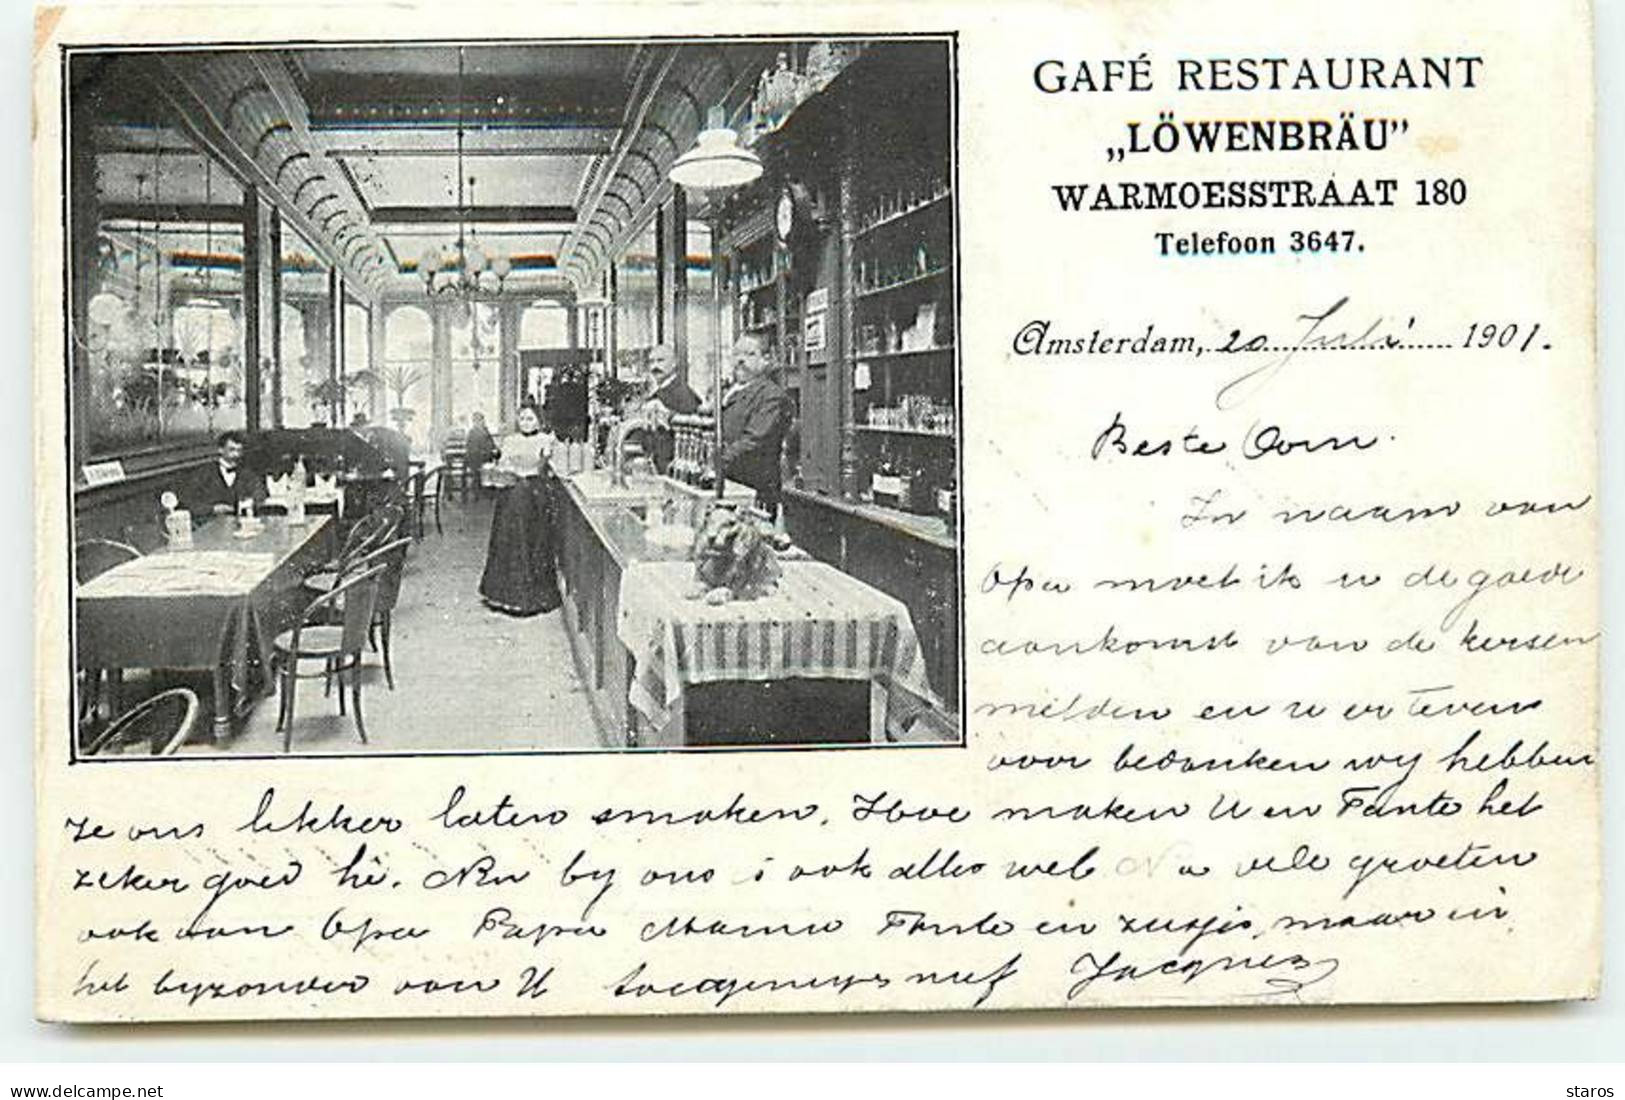 GAFÉ RESTAURANT
„LÖWENBRÄU”
WARMOESSTRAAT 180
Telefoon 3647.
Amsterdam, 20 Juli 1901.
Beste Oom.
In naam van
Opa moet ik u de goede
aankomst van de kersen
melden en u er tevens
voor bedanken wy hebben
ze ons lekker laten smaken. Hoe maken U en Tante het
zeker goed hè. Nu by ons is ook alles wel Nu vele groeten
ook van Opa Papa Mama Tante en zusjes, maar in
het byzonder van U toegenegen neef Jacques
delcampe.net
staros